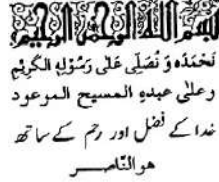 بسم الله الرحمن الرحيم
نحمدہ و نصلی علی رسوله الکریم
وعلی عبدہ المسیح الموعود
خدا کے فضل اور رحم کے ساتھ
هو النّاصر